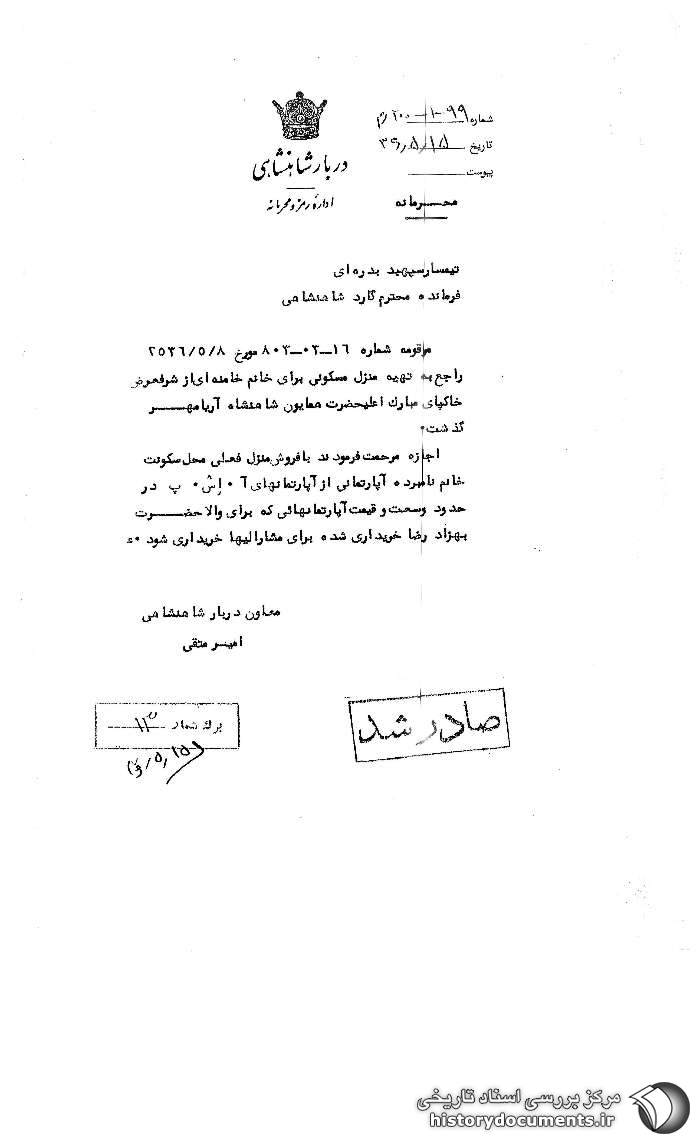 شماره ۹۹-۱-۲۰۰/م
تاریخ ۳۶/۵/۱۵
پیوست
محـــرمانه
دربار شاهنشاهی
اداره رمز و محرمانه
تیمسار سپهبد بدره ای
فرمانده محترم گارد شاهنشاهی
مرقومه شماره ۱۶-۰۲-۸۰۳ مورخ ۲۵۳۶/۵/۸
راجع به تهیه منزل مسکونی برای خانم خامنه ای از شرفعرض
خاکپای مبارك اعلیحضرت همایون شاهنشاه آریامهـــر
گذشت.
اجازه مرحمت فرمودند با فروش منزل فعلی محل سکونت
خانم نامبرده آپارتمانی از آپارتمانهای آ.اِش.پ در
حدود وسعت و قیمت آپارتمانهائی که برای والاحضـــرت
بهزاد رضا خریداری شده برای مشارالیها خریداری شود.
معاون دربار شاهنشاهی
امیـر متقی
برگ شمار ۱۱۳
۳۶/۵/۱۵
صادر شد
مرکز بررسی اسناد تاریخی
historydocuments.ir